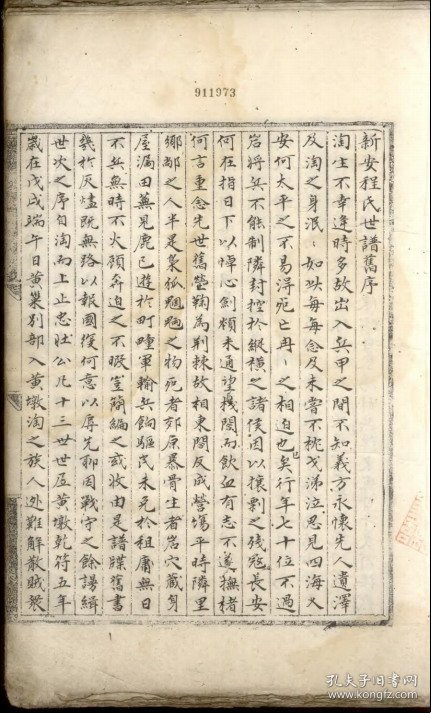 911973
新安程氏世譜舊序
淘生不幸逢時多故出入兵甲之間不知義方永懷先人遺澤
及淘之身泯〻如以每每念及未嘗不桃戈涕泣思見四海乂
安何太平之不易得死亡再〻之相迫也已矣行年七十位不過
岩將兵不能制隣封控於縱橫之諸侯因以攘剽之殘寇長安
何在指日下以悼心劍頰未通望機関而飲血有志不遂撫楮
何言重念先世舊塋鞠為荆棘故相東閣反成營場平時隣里
鄉鄰之人半是梟狐魍魎之物死者郊原暴骨生者岩穴藏身
屋漏田蕪見鹿已遊於町疃軍輸兵餉驅民未免於租庸無日
不兵無時不火頋奔迫之不暇豈簡編之或收由是譜牒舊書
幾於灰燼既無路以報國復何意以辱先聊因戰守之餘謾緝
世次之序自淘而上正忠壯公凡十三世世居黄墩乾符五年
歲在戊戌端午日黄巢別部入黄墩淘之族人逊難解散賊衆
孔夫子旧书网
www.kongfz.com